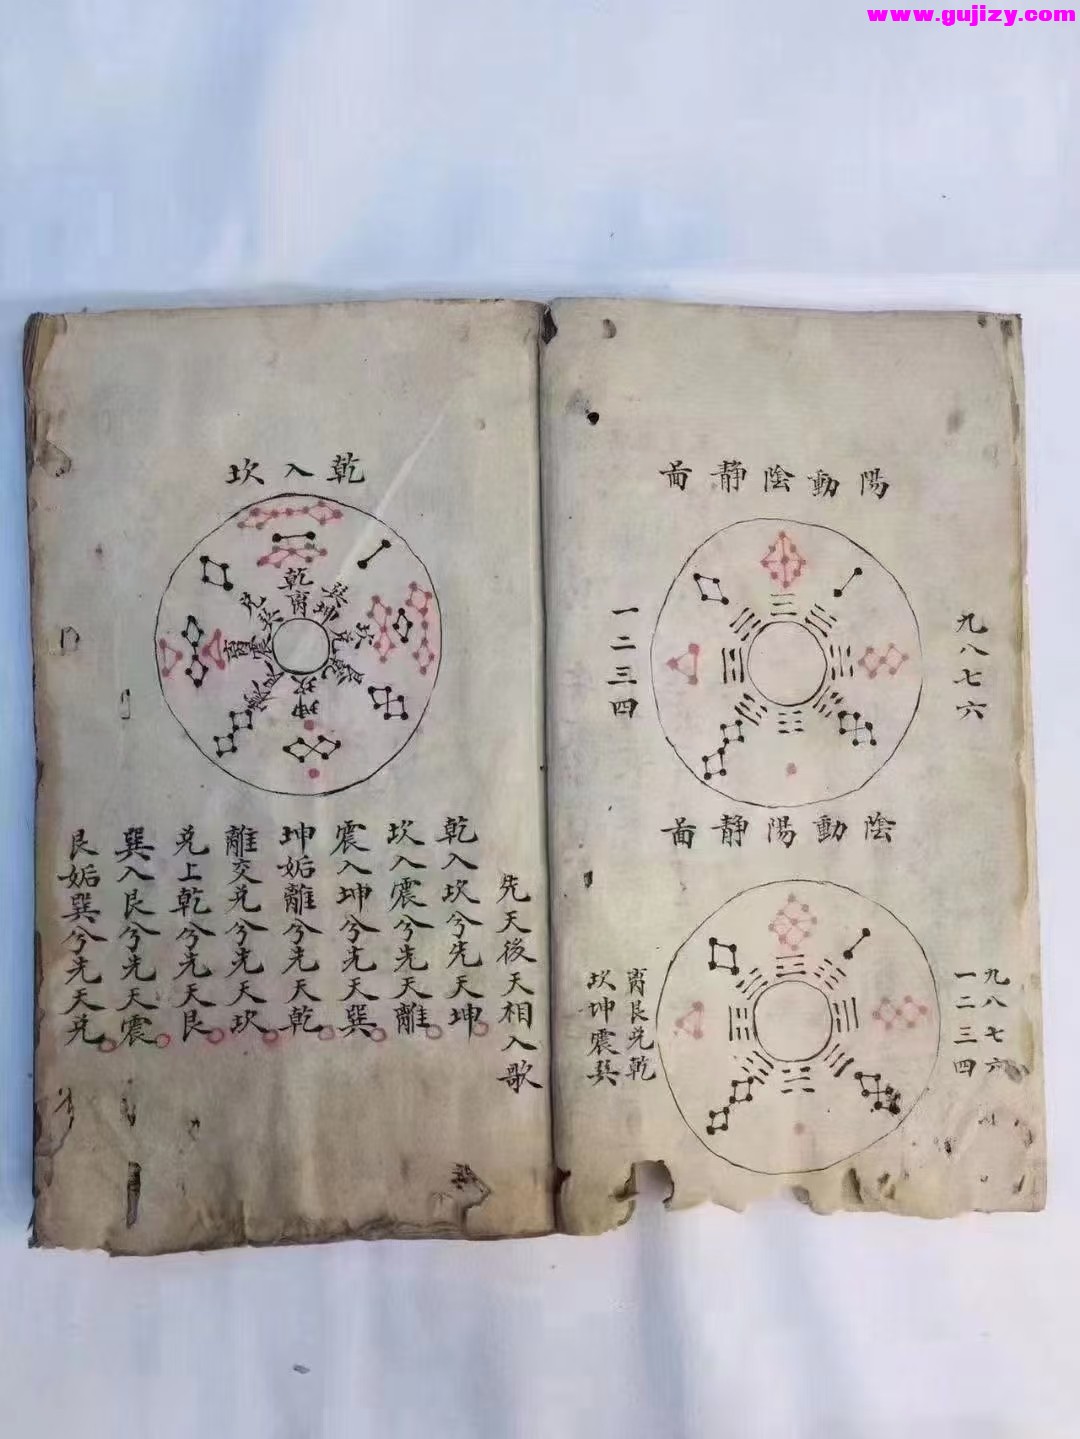 www.gujizy.com
陽動陰靜啚
九八七六
一二三四
陰動陽靜啚
九八七六
一二三四
离艮兑乾
坎坤震巽
乾入坎
乾
离
巽
坤
坎
兑
坎
坤
离
震
兑
先天後天相入歌
乾入坎兮先天坤
坎入震兮先天離
震入坤兮先天巽
坤姤離兮先天乾
離交兑兮先天坎
兑上乾兮先天艮
巽入艮兮先天震
艮姤巽兮先天兑